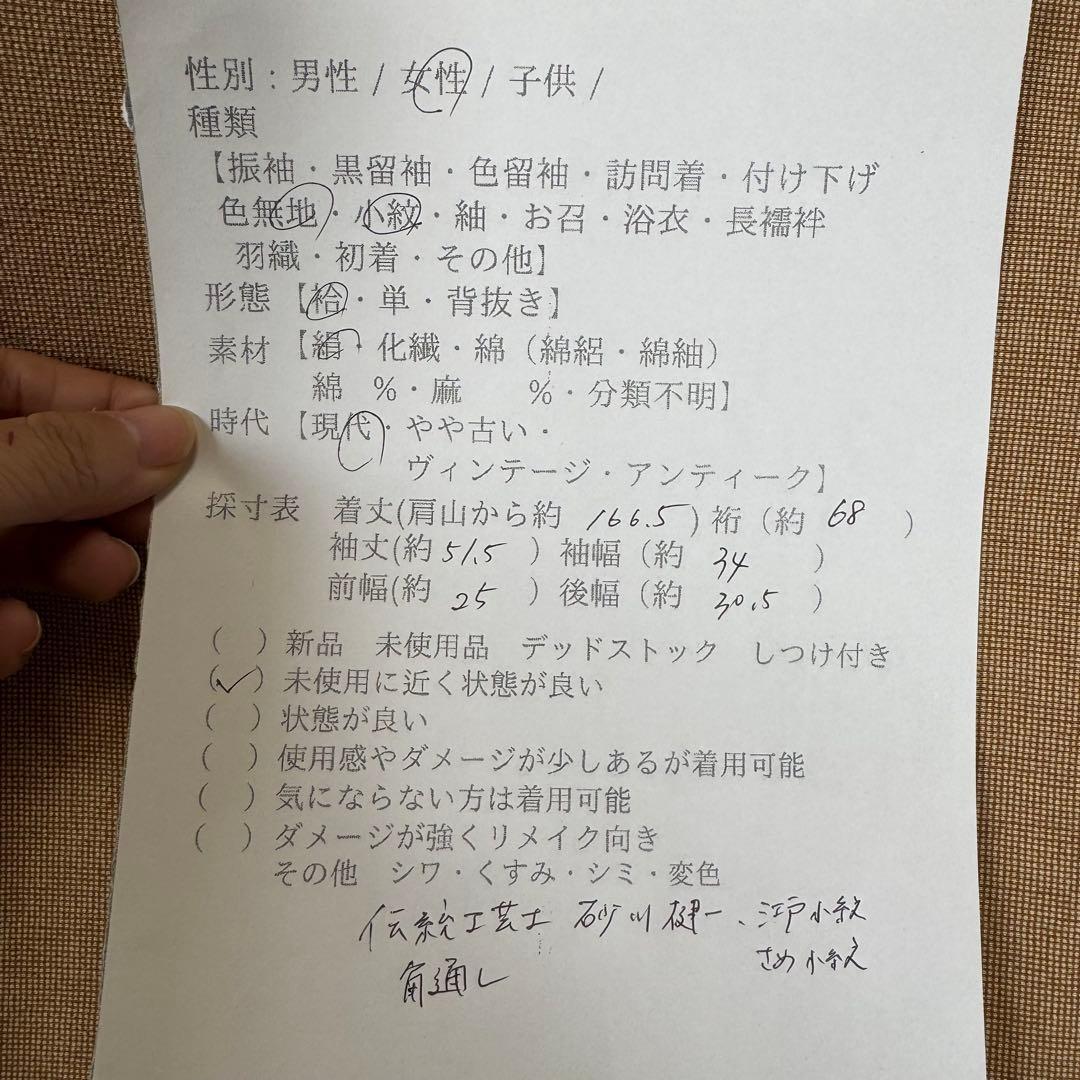 性別：男性 / 女性 / 子供 /
種類
【振袖・黒留袖・色留袖・訪問着・付け下げ
色無地・小紋・紬・お召・浴衣・長襦袢
羽織・初着・その他】
形態【袷・単・背抜き】
素材【絹・化繊・綿（綿絽・綿紬）
綿 %・麻 %・分類不明】
時代【現代・やや古い・
ヴィンテージ・アンティーク】
採寸表 着丈(肩山から約 166.5)裄（約 68 ）
袖丈(約 51.5 ）袖幅（約 34 ）
前幅(約 25 ）後幅（約 30.5 ）
（ ）新品 未使用品 デッドストック しつけ付き
（✓）未使用に近く状態が良い
（ ）状態が良い
（ ）使用感やダメージが少しあるが着用可能
（ ）気にならない方は着用可能
（ ）ダメージが強くリメイク向き
その他 シワ・くすみ・シミ・変色
伝統工芸士 砂川健一、江戸小紋
さめ小紋
角通し